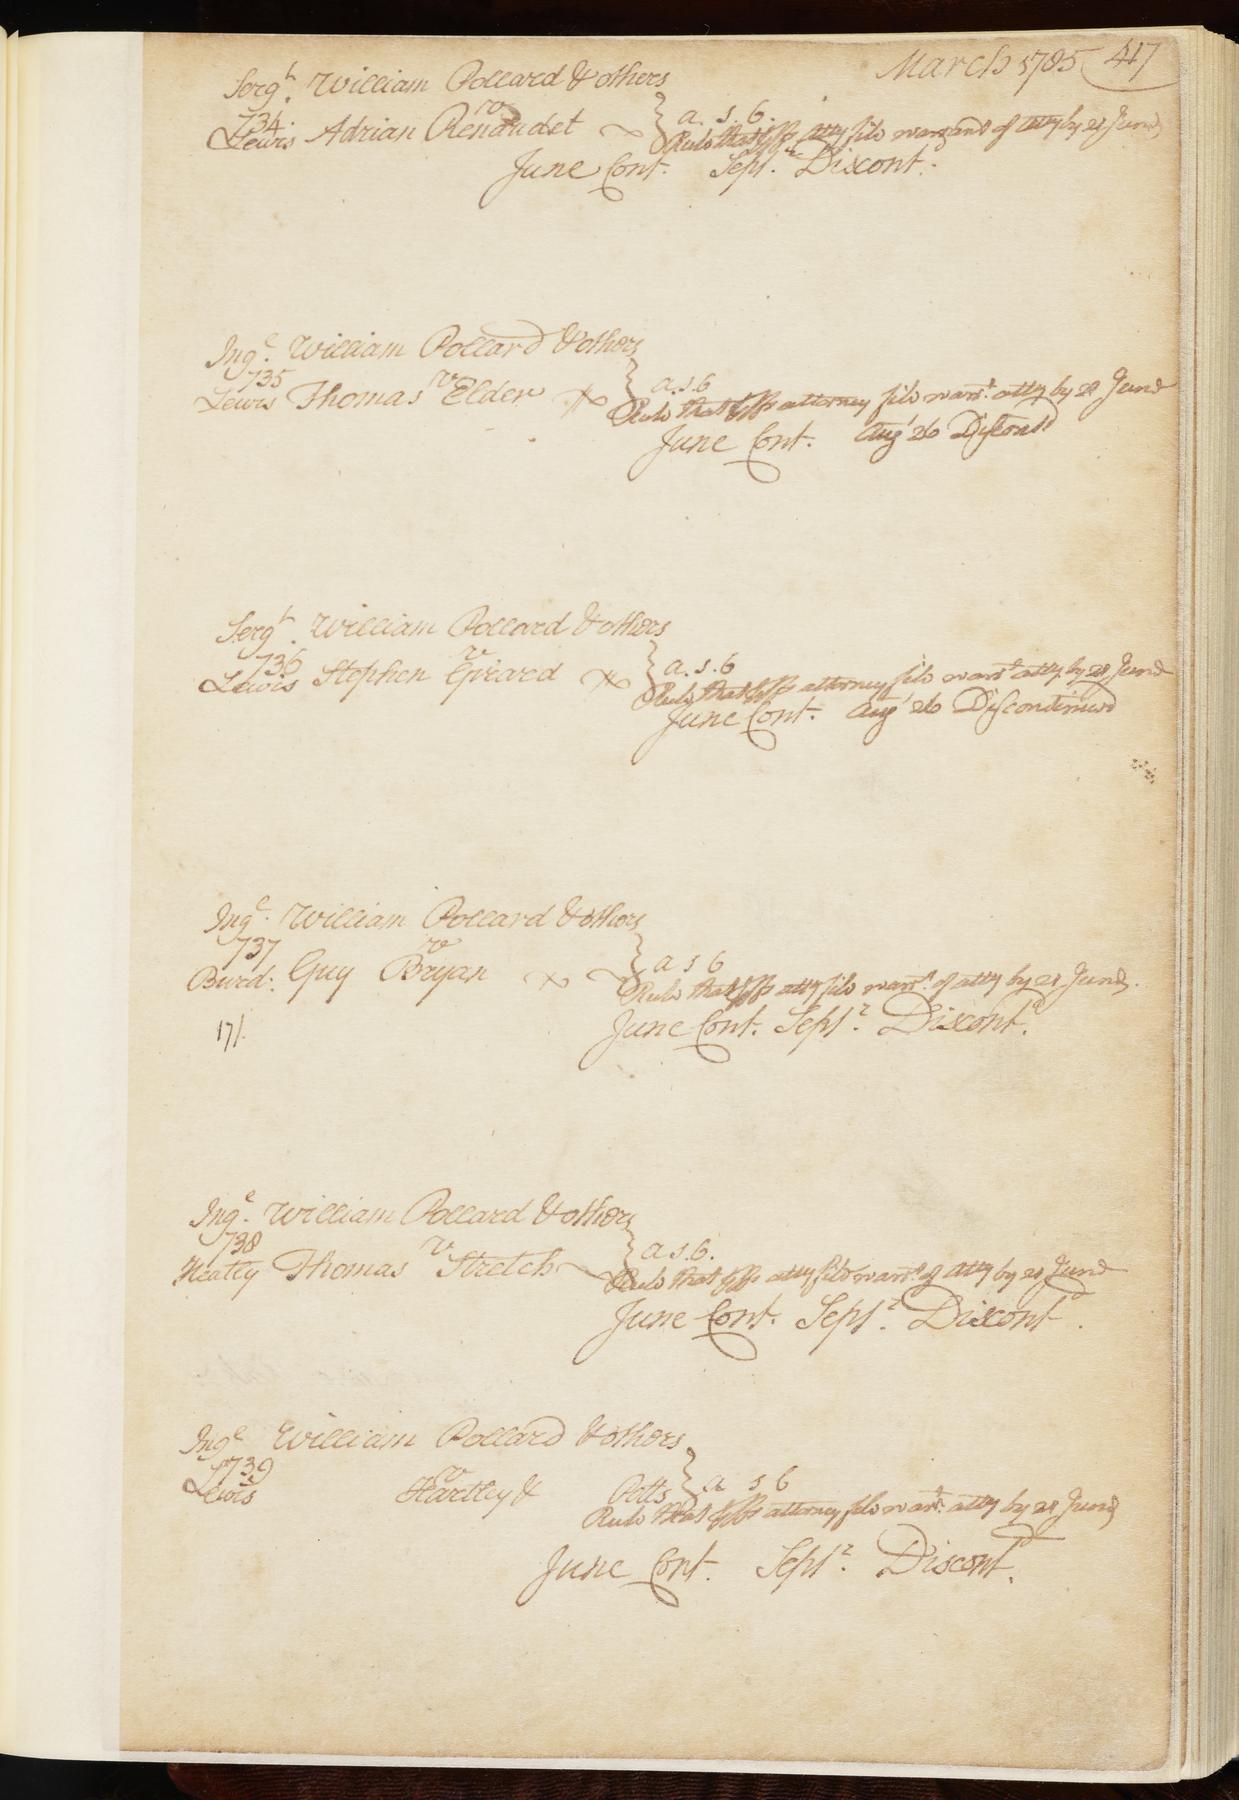 March 1785 417
Serg.t William Pollard & others
734. v
Lewis Adrian Renaudet } a. s. 6.
Rule that plffs atty file warrant of atty by 21 June
June Cont. Sept.r Discont.
Ing.e William Pollard & others
735 v
Lewis Thomas Elder } a. s. 6
Rule that plffs attorney file warr.t atty by 21 June
June Cont. Aug.t 26 Discont.d
Serg.t William Pollard & others
736 v
Lewis Stephen } a. s. 6
Rule that plffs attorney file warr.t atty by 21 June
June Cont. Aug.t 26 Discontinued
Ing.e William Pollard & others
737 v
Burd. Guy Bryan } a s 6
Rule that plffs atty file warr.t of atty by 21 June.
17/. June Cont. Sept.r Discont.d
Ing.e William Pollard & others
738 v
Heatly Thomas Stretch } a s. 6.
Rule that plffs atty file warr.t of atty by 21 June
June Cont. Sept.r Discont.d
Ing.e William Pollard & others
739 v
Lewis Hartley & Potts } a s 6
Rule that plffs attorney file warr.t atty by 21 June
June Cont. Sept.r Discont.d